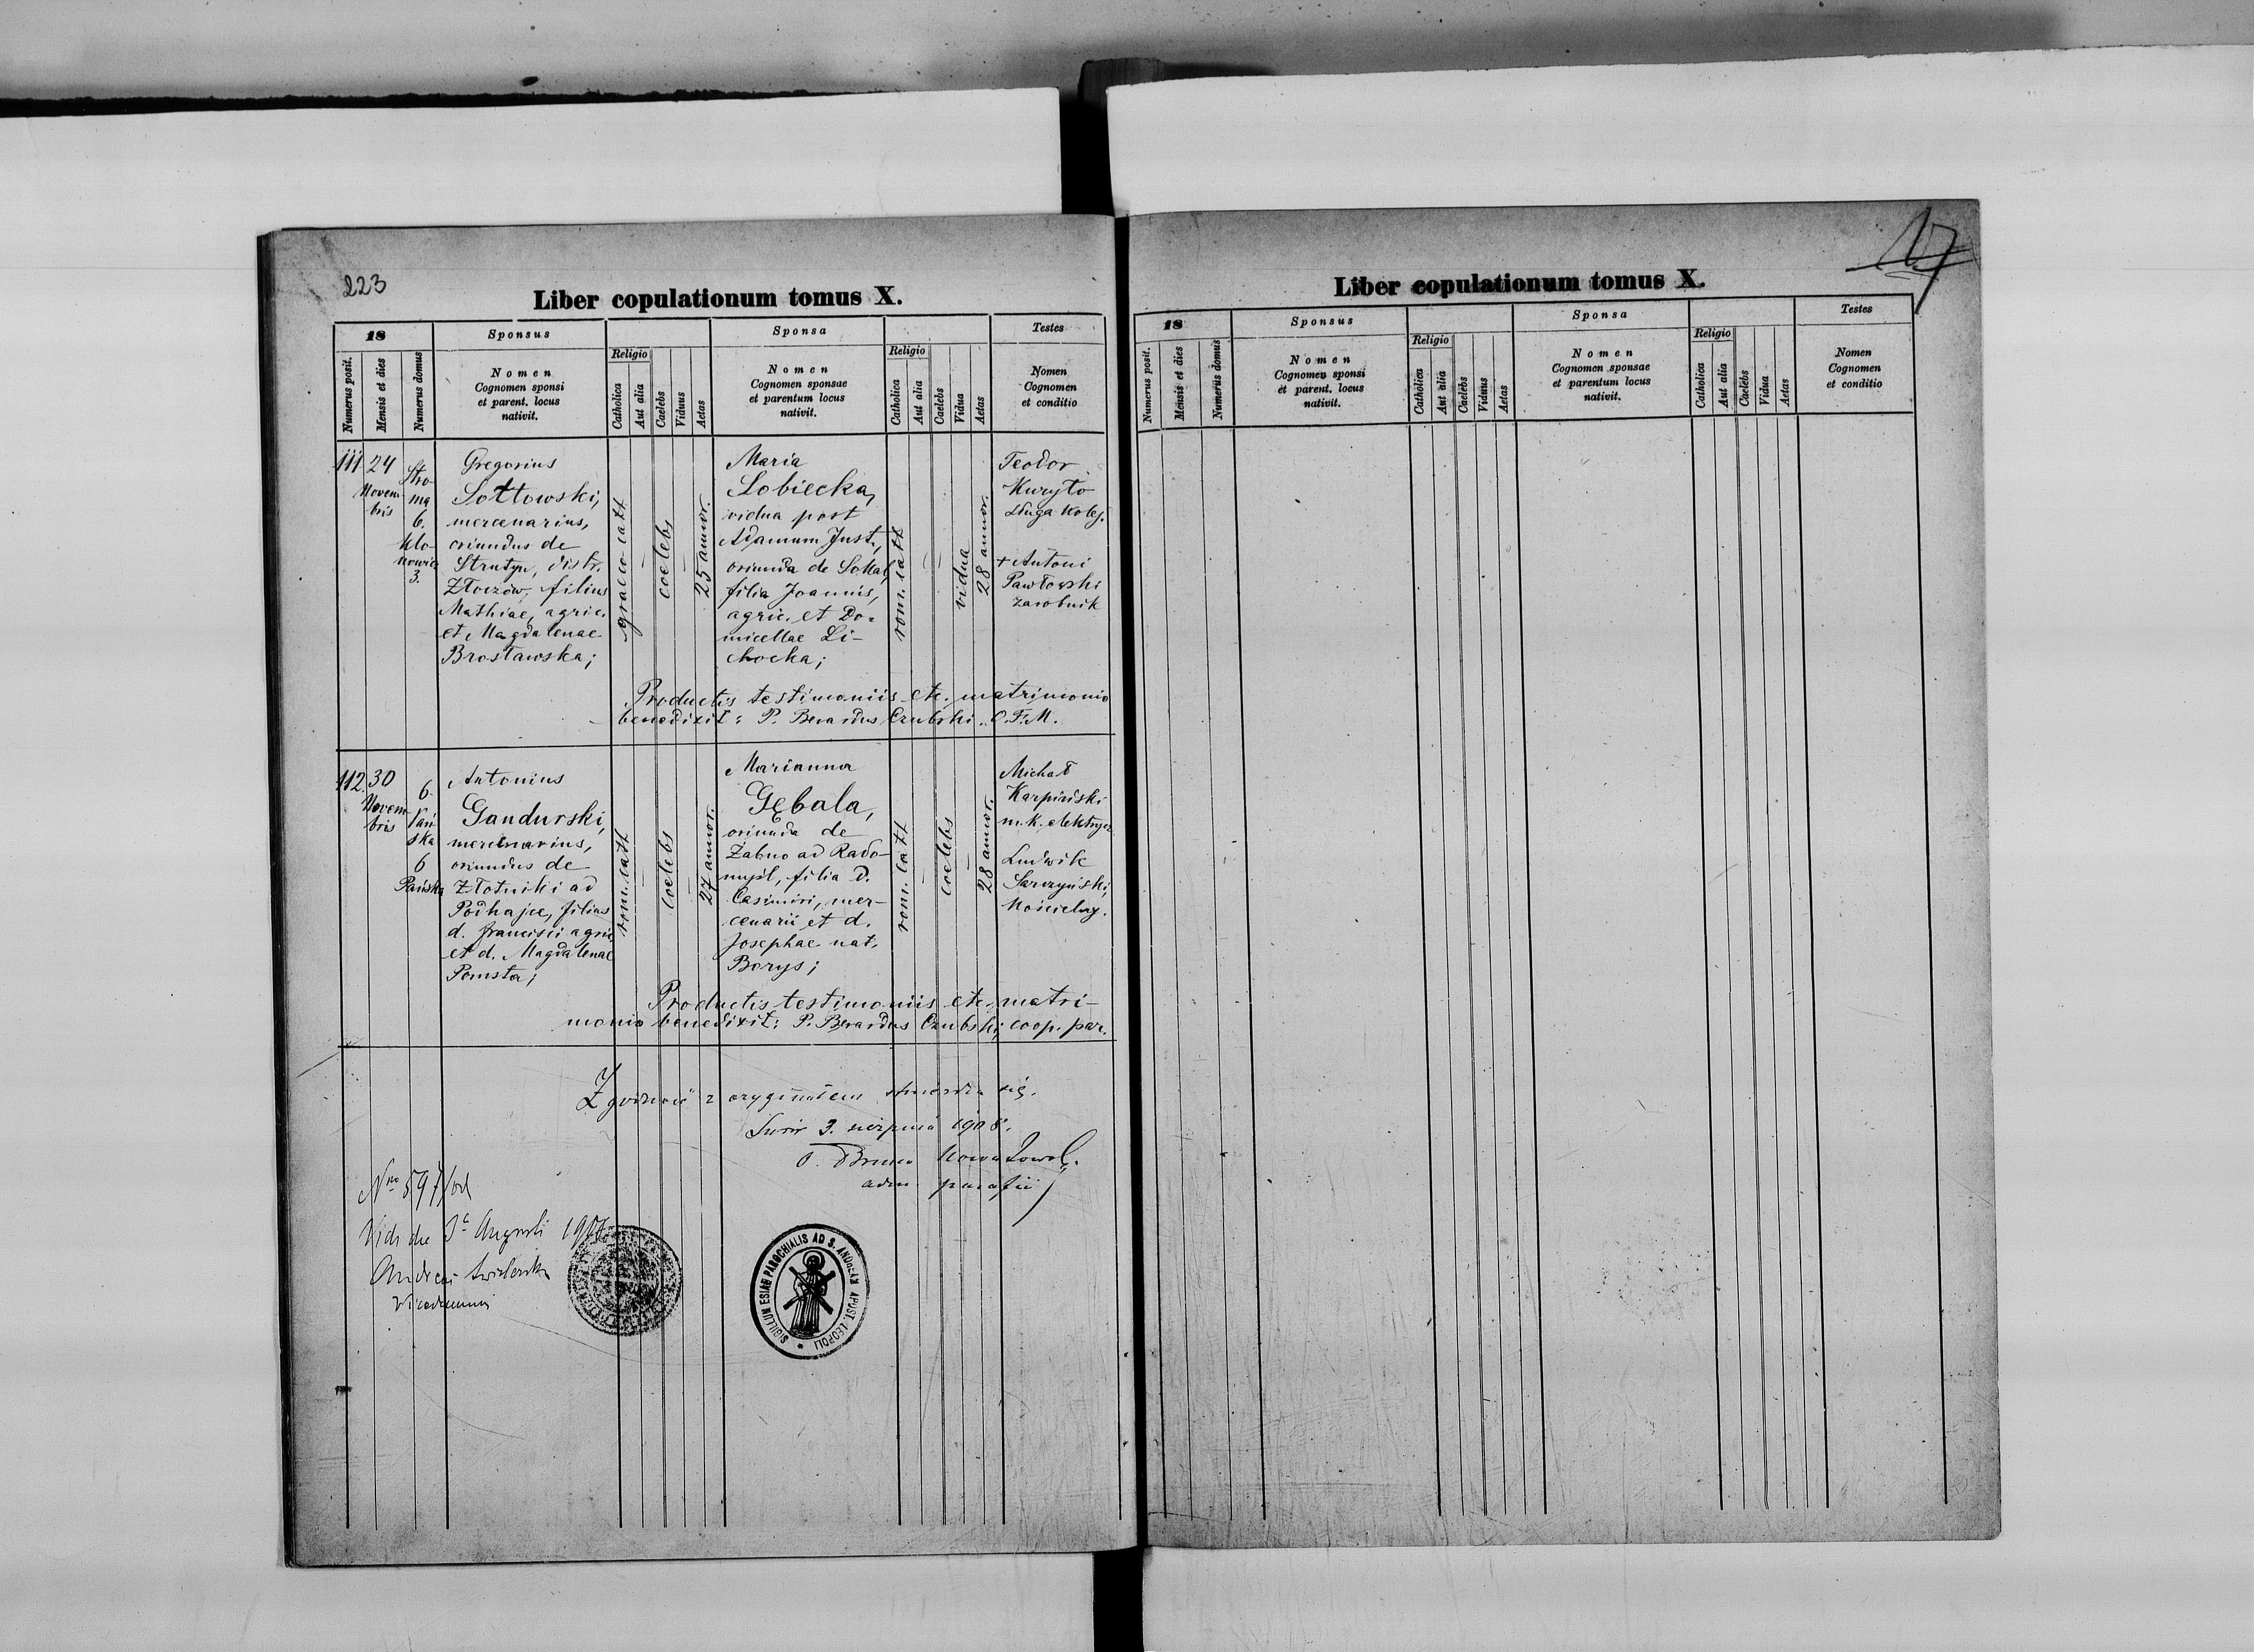 223
Liber copulationum tomus X.
18
Numerus posit.
Mensis et dies
Numerus domus
Sponsus
Nomen
Cognomen sponsi
et parent. locus
nativit.
Religio
Catholica
Aut alia
Caelebs
Viduus
Aetas
Sponsa
Nomen
Cognomen sponsae
et parentum locus
nativit.
Religio
Catholica
Aut alia
Caelebs
Vidua
Aetas
Testes
Nomen
Cognomen
et conditio
111
24
Novem
bris
Stro-
ma
6.
Klo-
nowicz
3.
Gregorius
Sołtowski,
mercenarius,
oriundus de
Strutyn, distr.
Złoczów, filius
Mathiae, agric.
et Magdalenae
Brosławska;
graeco-cath
coelebs
25 annor.
Maria
Sobiecka,
vidua post
Adamum Just.,
oriunda de Sokal,
filia Joannis,
agric. et Do-
micellae Li-
chocka;
rom. cath
vidua
28 annor.
Teodor
Kuryło
sługa kolej.
+ Antoni
Pawłowski
zarobnik
Productis testimoniis etc. matrimonio
benedixit: P. Berardus Czubski O.F.M.
112.
30
Novem
bris
6
Pań
ska
6
Pańska
Antonius
Gandurski,
mercenarius,
oriundus de
Złotniki ad
Podhajce, filius
d. Francisci agric.
et d. Magdalenae
Pomsta;
rom. cath
coelebs
27 annor.
Marianna
Gębala,
oriunda de
Żabno ad Rado-
myśl, filia d.
Casimiri, mer-
cenarii et d.
Josephae nat.
Borys;
rom. cath
coelebs
28 annor.
Michał
Karpiński
m. k. elektrycz.
Ludwik
Sarzyński,
kościelny.
Productis testimoniis etc. matri-
monio benedixit: P. Berardus Czubski, coop. par.
Zgodność z oryginałem stwierdza się.
Lwów 3. sierpnia 1908.
O. Bruno
adm. parafii
Nro 597/
Vidi die Augusti
Andreas
SIGILLUM PAROCHIALIS AD S. ANDREAM APOST. LEOPOLI
17
Liber copulationum tomus X.
18
Numerus posit.
Mensis et dies
Numerus domus
Sponsus
Nomen
Cognomen sponsi
et parent. locus
nativit.
Religio
Catholica
Aut alia
Caelebs
Viduus
Aetas
Sponsa
Nomen
Cognomen sponsae
et parentum locus
nativit.
Religio
Catholica
Aut alia
Caelebs
Vidua
Aetas
Testes
Nomen
Cognomen
et conditio